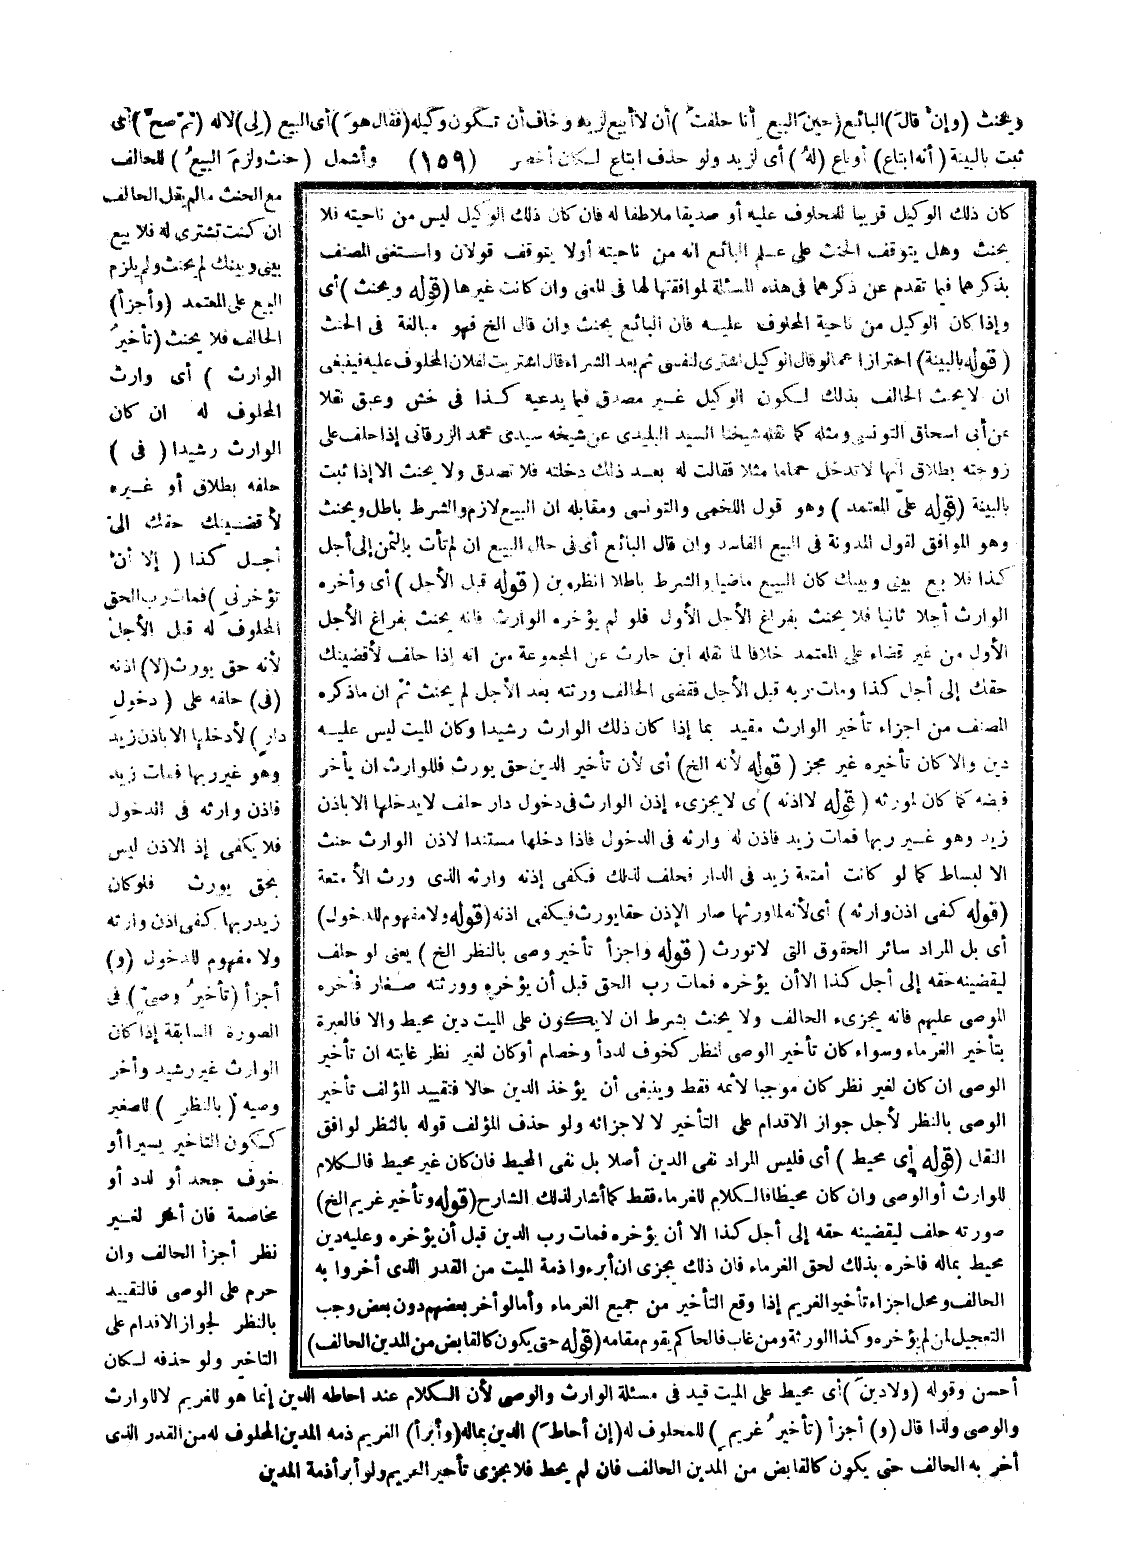 ويحنث (وإن قال) البائع (حين البيع أنا حلفت) أن لا أبيع لزيد وخاف أن تكون وكيله (فقال هو) أى البيع (لى) لاله (ثم صح) أى
ثبت بالبينة (أنه ابتاع) أوباع (له) أى لزيد ولو حذف ابتاع لكان أخصر (١٥٩) وأشمل (حنث ولزم البيع) للحالف
مع الحنث مالم يقل الحالف
ان كنت تشترى له فلا بيع
بينى وبينك لم يحنث ولم يلزم
البيع على المعتمد (وأجزأ)
الحالف فلا يحنث (تأخير
الوارث) أى وارث
المحلوف له ان كان
الوارث رشيدا (فى)
حلفه بطلاق أو غيره
لأقضينك حقك الى
أجل كذا (إلا أن
تؤخرنى) فمات رب الحق
المحلوف له قبل الأجل
لأنه حق يورث (لا) اذنه
(فى) حلفه على (دخول
دار) لأدخلها الا باذن زيد
وهو غير ربها فمات زيد
فاذن وارثه فى الدخول
فلا يكفى إذ الاذن ليس
بحق يورث فلو كان
زيد ربها كفى اذن وارثه
ولا مفهوم للدخول (و)
أجزأ (تأخير وصى) فى
الصورة السابقة إذا كان
الوارث غير رشيد وأخر
وصيه (بالنظر) للصغير
ككون التاخير يسيرا أو
خوف جحد أو لدد أو
مخاصمة فان أخر لغير
نظر أجزأ الحالف وان
حرم على الوصى فالتقييد
بالنظر لجواز الاقدام على
التاخير ولو حذفه لكان
كان ذلك الوكيل قريبا للمحلوف عليه أو صديقا ملاطفا له فان كان ذلك الوكيل ليس من ناحيته فلا
يحنث وهل يتوقف الحنث على علم البائع انه من ناحيته أولا يتوقف قولان واستغنى المصنف
بذكرهما فيما تقدم عن ذكرهما فى هذه المسئلة لموافقتها لها فى المعنى وان كانت غيرها (قوله ويحنث) أى
وإذا كان الوكيل من ناحية المحلوف عليه فان البائع يحنث وان قال الخ فهو مبالغة فى الحنث
(قوله بالبينة) احترازا عما لو قال الوكيل اشترى لنفسى ثم بعد الشراء قال اشتريت لفلان المحلوف عليه فينبغى
ان لا يحنث الحالف بذلك لكون الوكيل غير مصدق فيما يدعيه كذا فى خش وعبق نقلا
عن أبى اسحاق التونسى ومثله كما نقله شيخنا السيد البليدى عن شيخه سيدى محمد الزرقانى إذا حلف على
زوجته بطلاق انها لا تدخل حماما مثلا فقالت له بعد ذلك دخلته فلا تصدق ولا يحنث الا إذا ثبت
بالبينة (قوله على المعتمد) وهو قول اللخمى والتونسى ومقابله ان البيع لازم والشرط باطل ويحنث
وهو الموافق لقول المدونة فى البيع الفاسد وان قال البائع أى فى حال البيع ان لم تأت بالثمن إلى أجل
كذا فلا بيع بينى وبينك كان البيع ماضيا والشرط باطلا انظره بن (قوله قبل الأجل) أى وأخره
الوارث أجلا ثانيا فلا يحنث بفراغ الأجل الأول فلو لم يؤخره الوارث فانه يحنث بفراغ الأجل
الأول من غير قضاء على المعتمد خلافا لما نقله ابن حارث عن المجموعة من انه إذا حلف لأقضينك
حقك إلى أجل كذا ومات ربه قبل الأجل فقضى الحالف ورثته بعد الأجل لم يحنث ثم ان ماذكره
المصنف من اجزاء تأخير الوارث مقيد بما إذا كان ذلك الوارث رشيدا وكان الميت ليس عليه
دين والا كان تأخيره غير مجز (قوله لأنه الخ) أى لأن تأخير الدين حق يورث فللوارث ان يأخر
قبضه كما كان لمورثه (قوله لا اذنه) أى لا يجزىء إذن الوارث فى دخول دار حلف لا يدخلها الا باذن
زيد وهو غير ربها فمات زيد فاذن له وارثه فى الدخول فاذا دخلها مستندا لاذن الوارث حنث
الا لبساط كما لو كانت أمتعة زيد فى الدار فحلف لذلك فيكفى إذنه وارثه الذى ورث الأمتعة
(قوله كفى اذن وارثه) أى لأنه لما ورثها صار الإذن حقا يورث فيكفى اذنه (قوله ولا مفهوم للدخول)
أى بل المراد سائر الحقوق التى لا تورث (قوله واجزأ تأخير وصى بالنظر الخ) يعنى لو حلف
ليقضينه حقه إلى أجل كذا الا أن يؤخره فمات رب الحق قبل أن يؤخره وورثته صغار فأخره
الموصى عليهم فانه يجزىء الحالف ولا يحنث بشرط ان لا يكون على الميت دين محيط والا فالعبرة
بتأخير الغرماء وسواء كان تأخير الوصى لنظر كخوف لددأ وخصام أو كان لغير نظر غايته ان تأخير
الوصى ان كان لغير نظر كان موجبا لأثمه فقط وينبغى أن يؤخذ الدين حالا فتقييد المؤلف تأخير
الوصى بالنظر لأجل جواز الاقدام على التأخير لا لاجزائه ولو حذف المؤلف قوله بالنظر لوافق
النقل (قوله أى محيط) أى فليس المراد نفى الدين أصلا بل نفى المحيط فان كان غير محيط فالكلام
للوارث أو الوصى وان كان محيطا فالكلام للغرماء فقط كما أشار لذلك الشارح (قوله وتأخير غريم الخ)
صورته حلف ليقضينه حقه إلى أجل كذا الا أن يؤخره فمات رب الدين قبل أن يؤخره وعليه دين
محيط بماله فاخره بذلك لحق الغرماء فان ذلك يجزى ان أبرءوا ذمة الميت من القدر الذى أخروا به
الحالف ومحل اجزاء تأخير الغريم إذا وقع التأخير من جميع الغرماء وأما لو أخر بعضهم دون بعض وجب
التعجيل لمن لم يؤخره وكذا الورثة ومن غاب فالحاكم يقوم مقامه (قوله حتى يكون كالقابض من المدين الحالف)
أحسن وقوله (ولا دين) أى محيط على الميت قيد فى مسئلة الوارث والوصى لأن الكلام عند احاطه الدين إنما هو للغريم لا للوارث
والوصى ولذا قال (و) أجزأ (تأخير غريم) للمحلوف له (إن أحاط) الدين بماله (وأبرأ) الغريم ذمه المدين المحلوف له من القدر الذى
أخر به الحالف حتى يكون كالقابض من المدين الحالف فان لم يحط فلا يجزى تأخير الغريم ولو أبرأ ذمة المدين